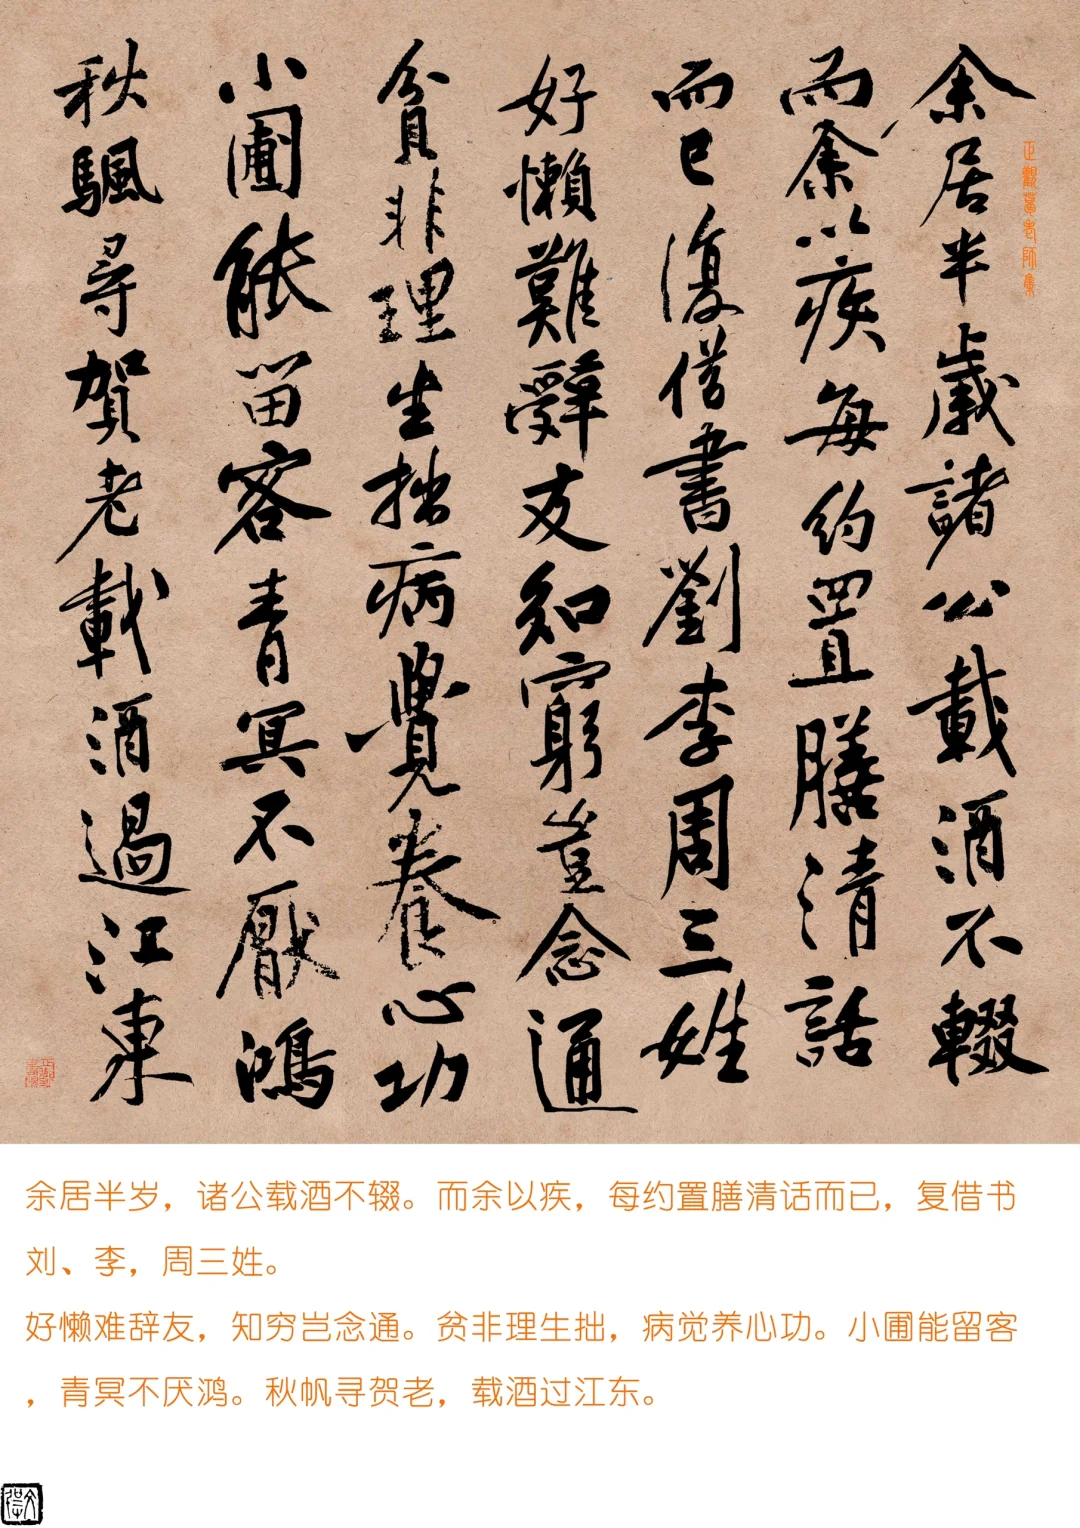 余居半歲諸公載酒不輟
而余以疾每約置膳清話
而已復借書劉李周三姓
好懶難辭友知窮豈念通
貧非理生拙病覺養心功
小圃能留客青冥不厭鴻
秋颿尋賀老載酒過江東
余居半岁，诸公载酒不辍。而余以疾，每约置膳清话而已，复借书
刘、李，周三姓。
好懒难辞友，知穷岂念通。贫非理生拙，病觉养心功。小圃能留客
，青冥不厌鸿。秋帆寻贺老，载酒过江东。